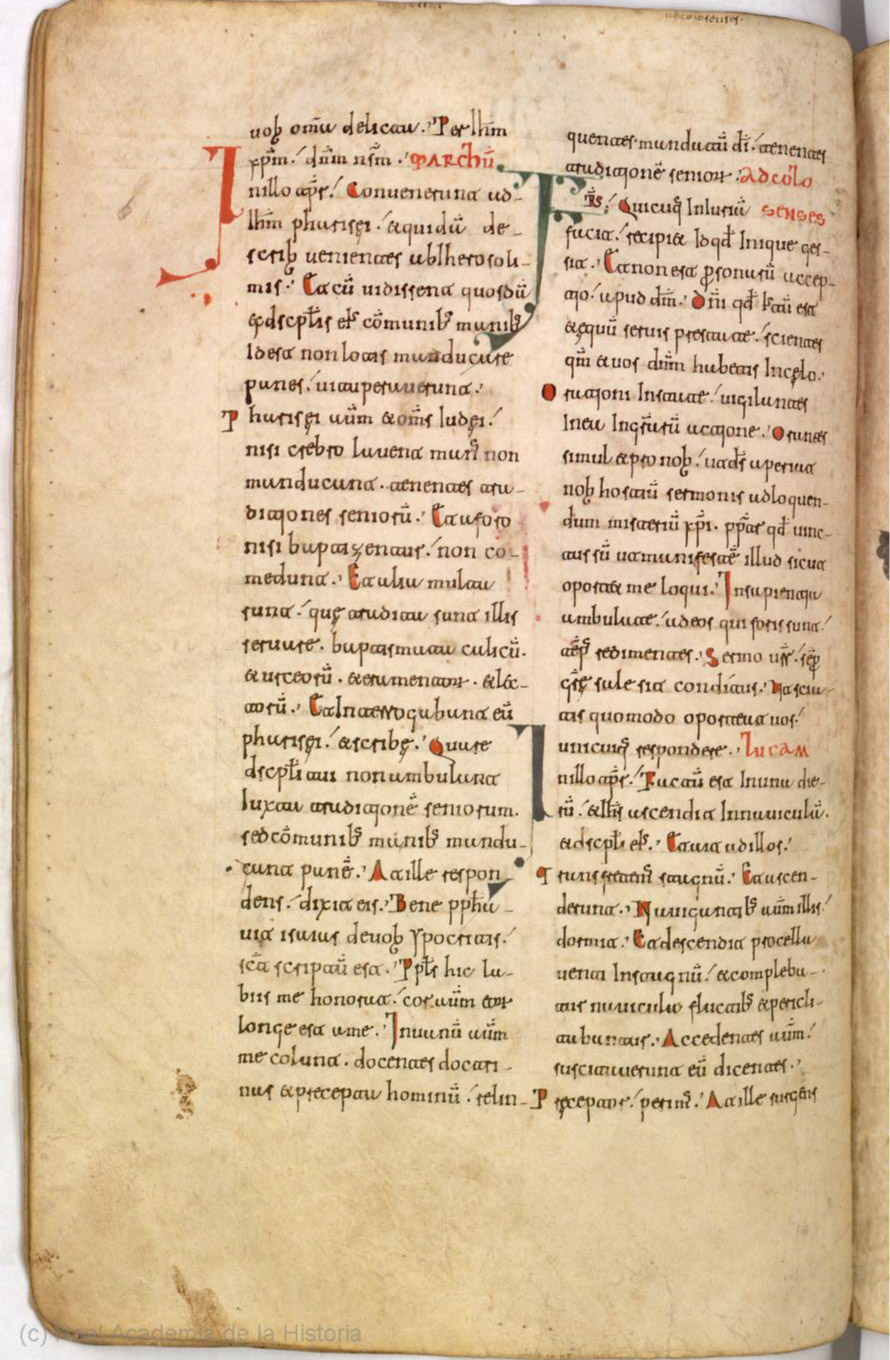 adcolosenses
uob omĩu delicata. Per Ihm
xpm. dnm nsm. MARCHŨ
Inillo aps. Convenerunt ad
Ihm pharisei. et quidã de
scrib venientes ab Iherosoli
mis. Et cũ vidissent quosdã
ex dscplis eis cõmunib manib
Idest non lotis manducare
panes. vituperaverunt.
Pharisei aũm et oms Iudei.
nisi crebro lavent man non
manducant. tenentes tra
ditiones seniorũ. Et a foro
nisi baptizentur. non co
medunt. Et alia multa
sunt. que tradita sunt illis
servare. baptismata calicũ.
et urceorũ. et eramentor. et lec
torũ. Et Interrogabant eũ
pharisei. et scribe. Quare
dscpli tui non ambulant
Iuxta traditionẽ seniorum.
sed cõmunib manib mandu
cant panẽ. At ille respon
dens. dixit eis. Bene pphta
vit isaias de vob ypocritis.
sca scriptũ est. Ppls hic la
biis me honorat. cor aũm eor
longe est a me. Invanũ aũm
me colunt. docentes doctri
nas et precepta hominũ. relin
quentes mandatũ di. tenentes
traditionẽ senior. ADCOLO
Frs. Quicuq Iniuriã SENSES
facit. recipiet Id qd Inique ges
sit. Et non est psonarũ accep
tio. apud dm. Dni qd Iustũ est
et equũ servis prestate. scientes
qm et vos dnm habetis In celo.
Orationi Instate. vigilantes
In ea In gratiarũ actione. Orantes
simul et pro nob. ut ds aperiat
nob hostiũ sermonis ad loquen
dum misteriũ xpi. ppter qd vinc
tus sũ ut manifestẽ illud sicut
oportet me loqui. In sapientia
ambulate. ad eos qui foris sunt.
temps redimentes. Sermo vsr. semp
grae sale sit condítus. Ut scia
tis quomodo oporteat vos
unicuiq respondere. LUCAM
Inillo aps. Factũ est In una die
rũ. et Ihs ascendit In naviculã.
et dscpli eis. Et ait ad illos.
Transfretem stagnũ. Et ascen
derunt. Navigantib aũm illis
dormit. Et descendit procella
venti In stagnũ. et compleba
tur navicula fluctib et pericli
tabantur. Accedentes aũm.
suscitaverunt eũ dicentes.
Preceptor. perim. At ille surgens
(c) Real Academia de la Historia